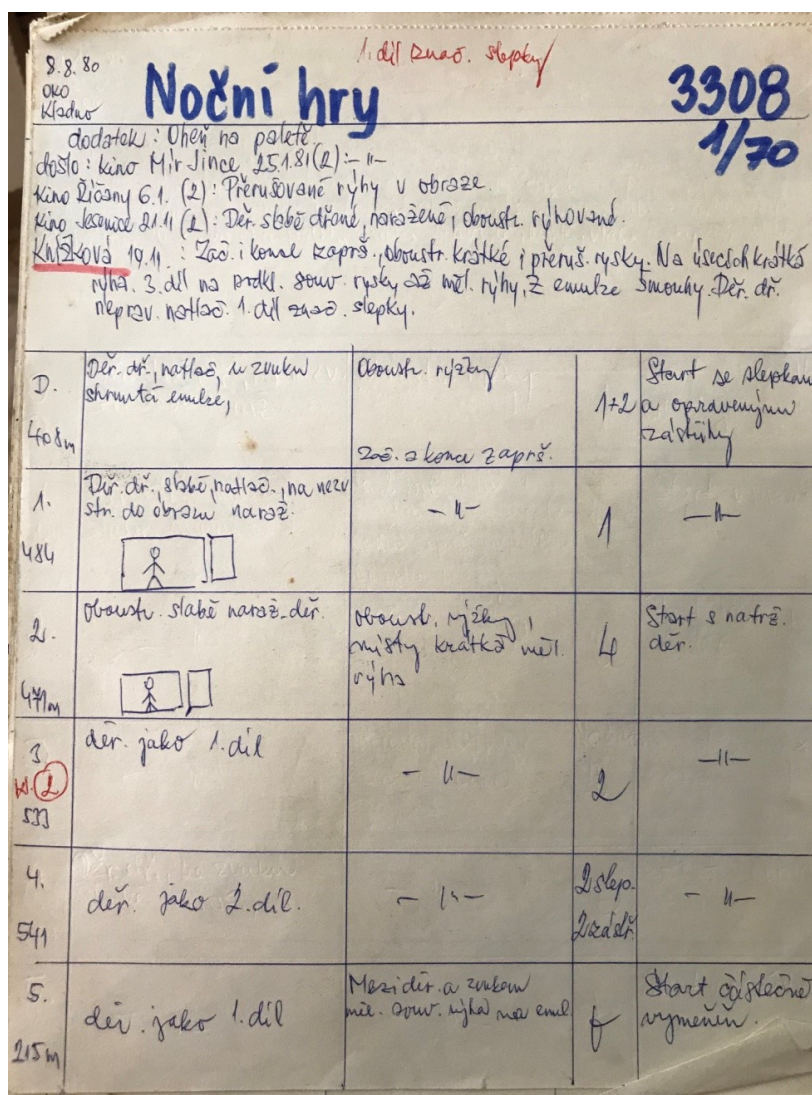 1. díl znač. slepky
8.8.80
OKO
Kladno
Noční hry
3308
1/70
dodatek: Oheň na paletě,
došlo: kino Mír Jince 25.1.81 (2): -||-
Kino Říčany 6.1. (2): Přerušované rýhy v obraze.
Kino Jesenice 21.11 (2): Děr. slabě dřené, naražené, oboustr. rýhované.
Knížková 19.11. : Zač. i konce zaprš., oboustr. krátké i přeruš. rysky. Na úsecích krátká
rýha. 3. díl na podkl. souv. rysky až měl. rýhy, z emulze šmouhy. Děr. dř.
neprav. natlač. 1. díl znač. slepky.
D.
408m
Děr. dř., natlač, u zvuku
shrnutá emulze,
Oboustr. rýžky
Zač. a konce zaprš.
1+2
Start se slepkam
a opravenými
zástřihy
1.
484
Děr. dř., slabě, natlač., na nezv
str. do obrazu naraž.
-||-
1
-||-
2.
471m
oboustr. slabě naraž. děr.
oboustr. rýžky,
místy krátká měl.
rýha
4
Start s natrž.
děr.
3.
2
533
děr. jako 1. díl
-||-
2
-||-
4.
541
děr. jako 2. díl.
-||-
2 slep.
2 zástř.
-||-
5.
215m
děr. jako 1. díl
Mezi děr. a zvukem
měl. souv. rýha na emul.
Start částečně
vyměněn.